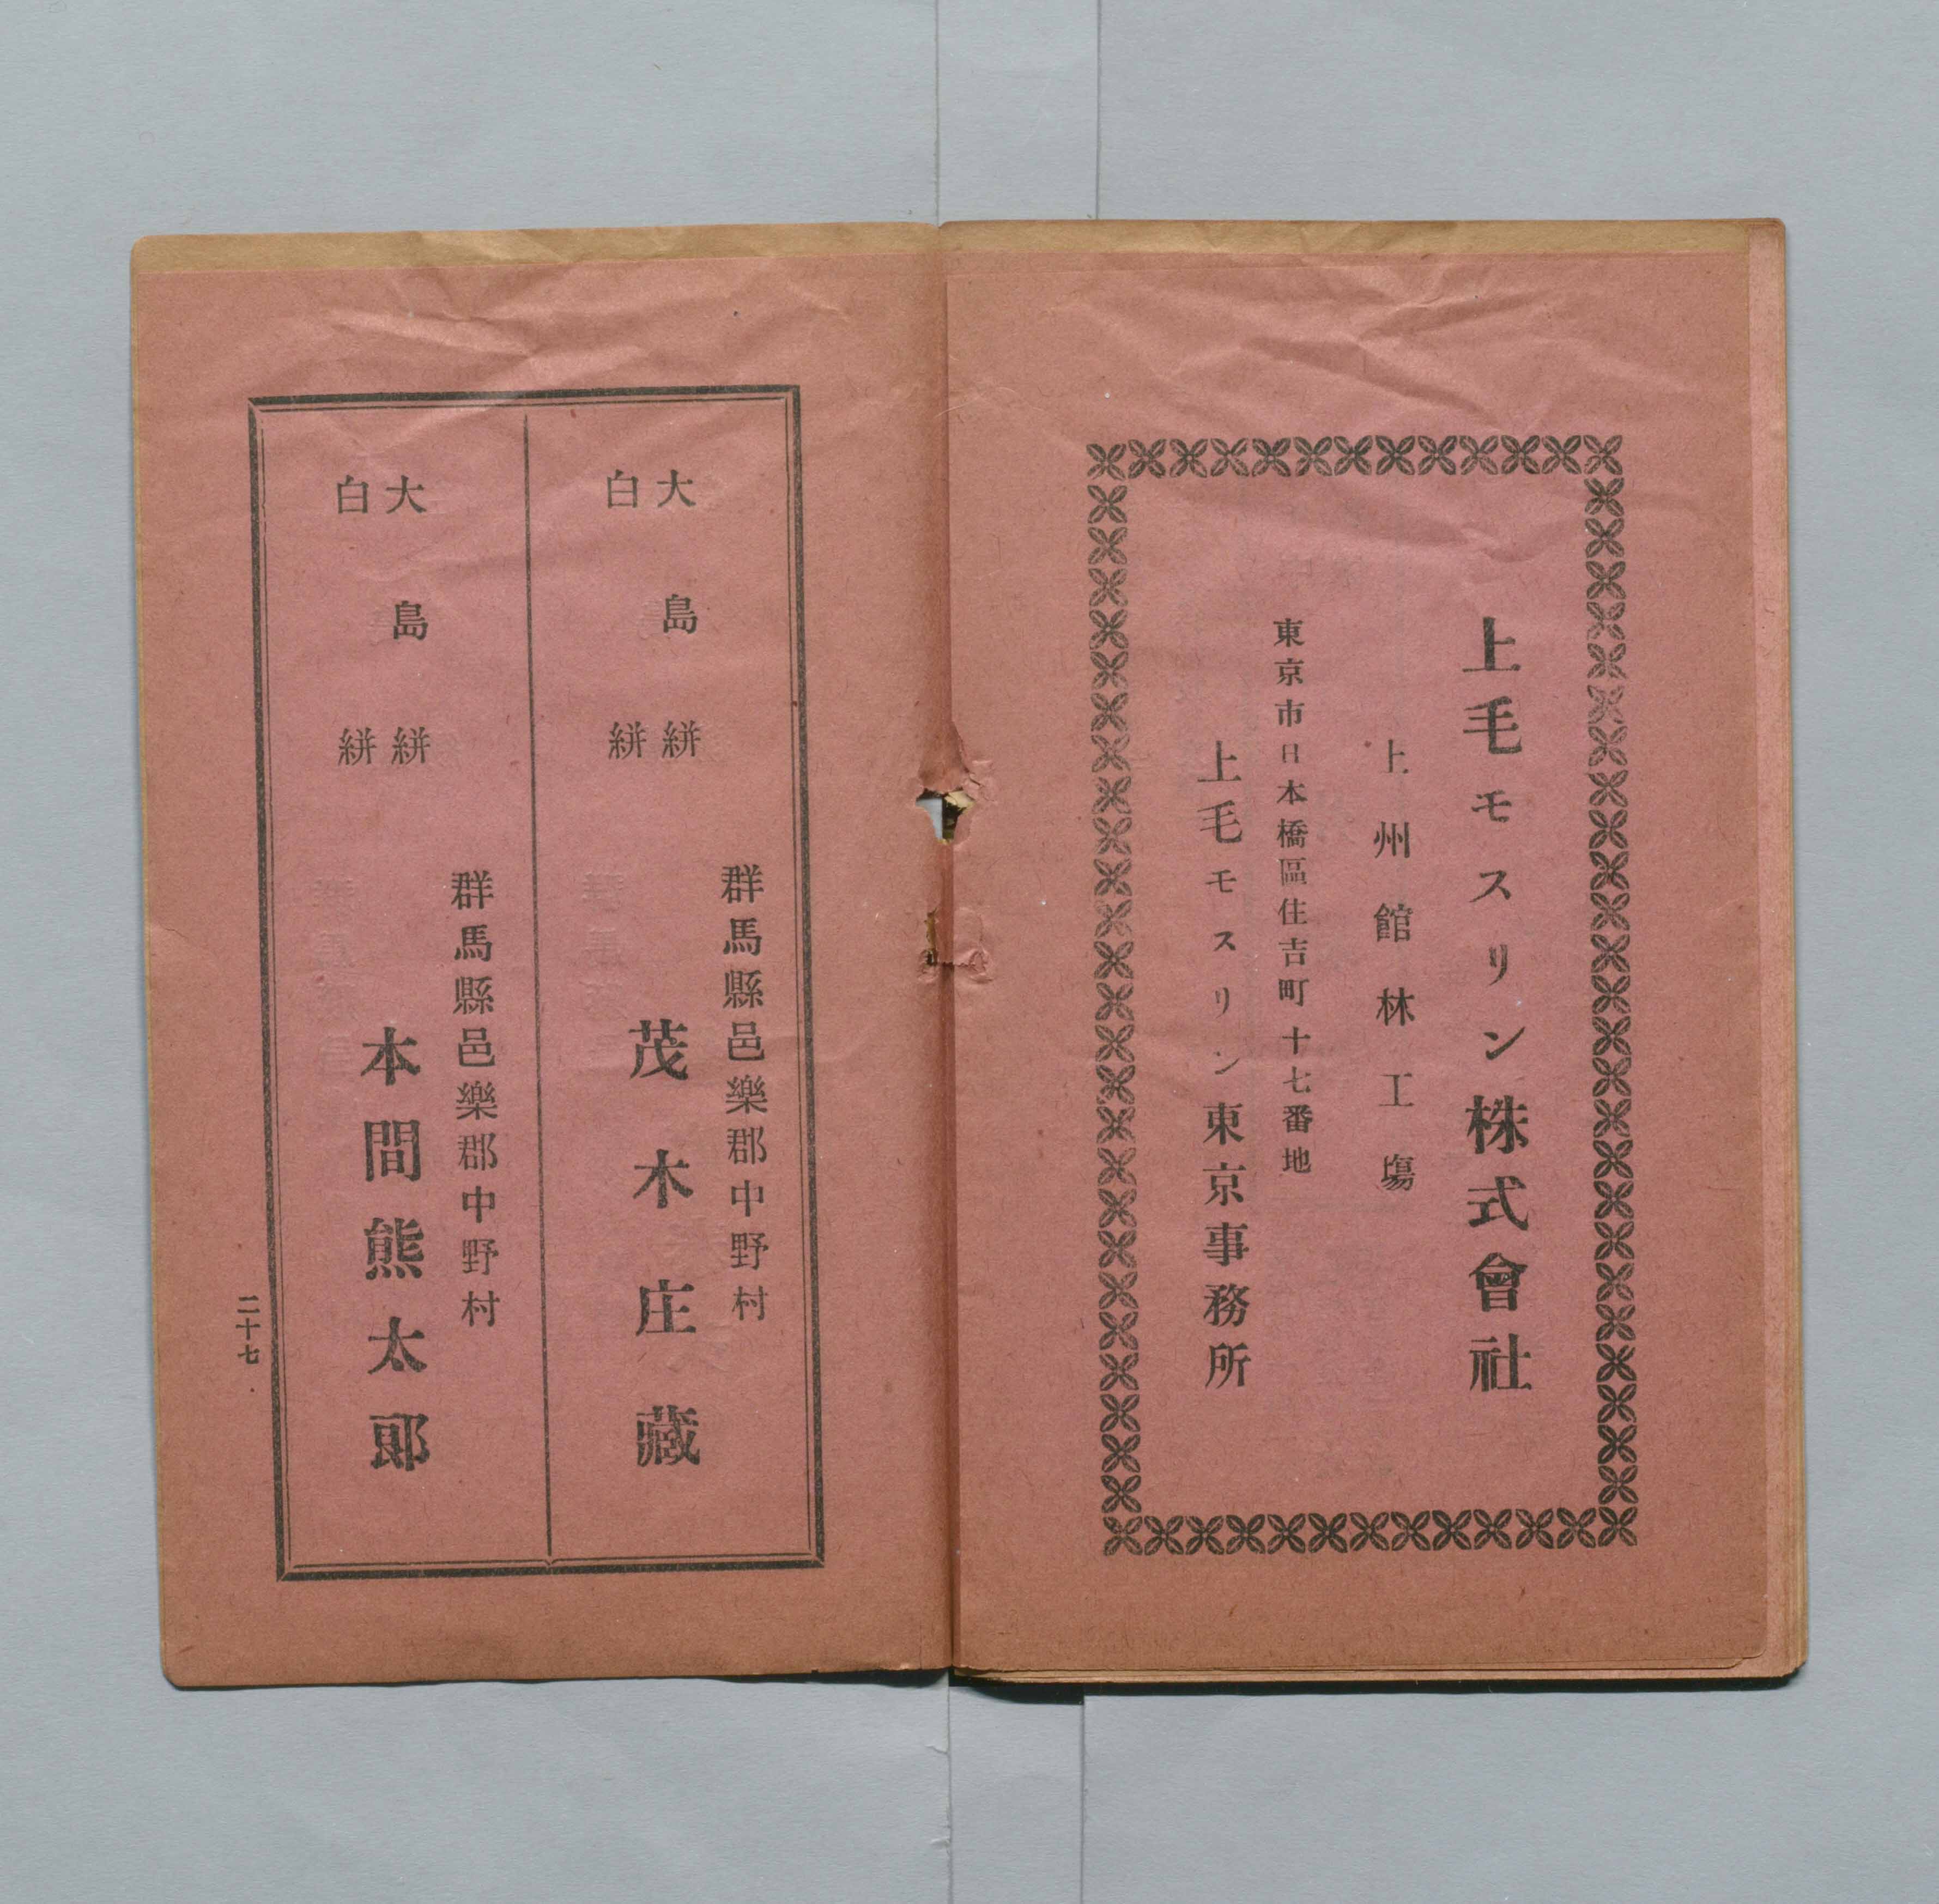 上毛モスリン株式會社
上州館林工塲
東京市日本橋區住吉町十七番地
上毛モスリン東京事務所
大島絣
白絣
群馬縣邑樂郡中野村
茂木庄藏
大島絣
白絣
群馬縣邑樂郡中野村
本間熊太郎
二十七